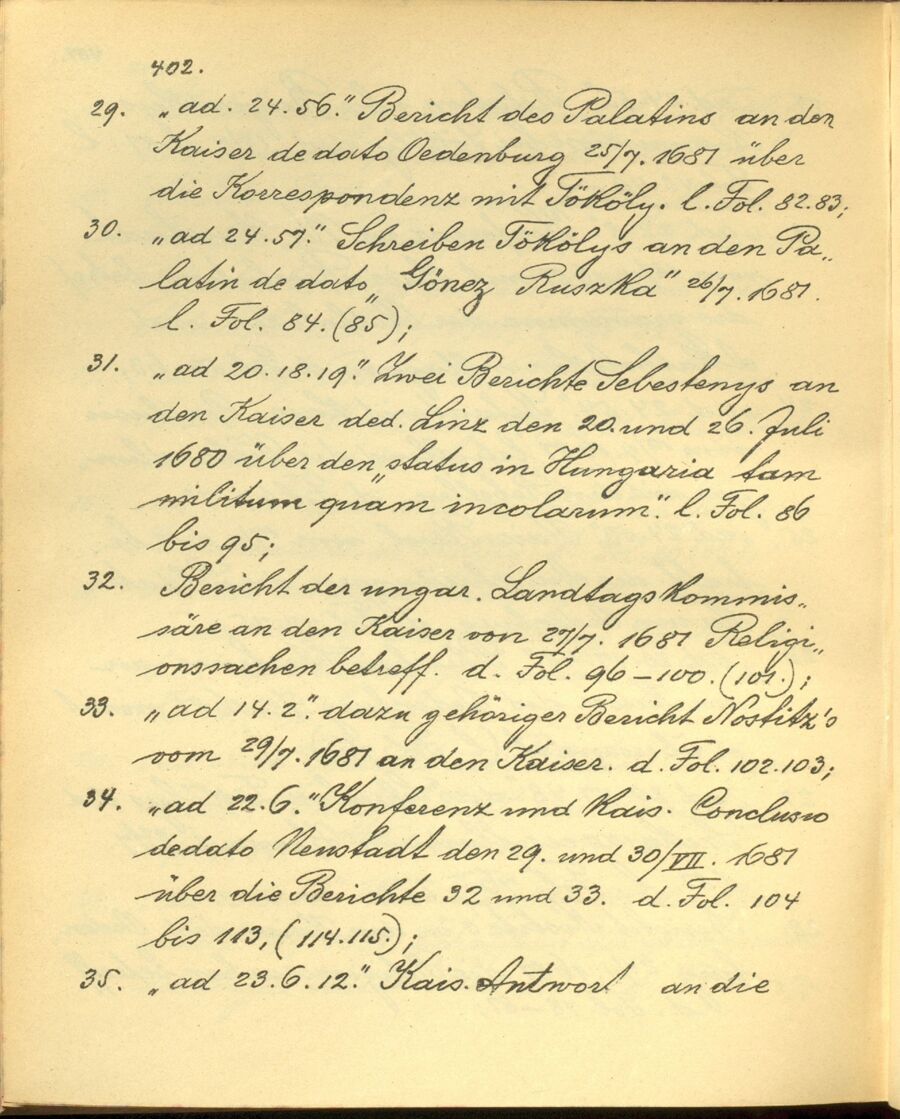 402.
29. „ad. 24.56." Bericht des Palatins an den
Kaiser de dato Oedenburg 25/7. 1681 über
die Korrespondenz mit Tököly. l. Fol. 82.83;
30. „ad 24.57." Schreiben Tökölys an den Pa„
latin de dato „Gönez Ruszka" 26/7. 1681.
l. Fol. 84. (85);
31. „ad 20.18.19." Zwei Berichte Sebestenys an
den Kaiser ded. Linz den 20. und 26. Juli
1680 über den „status in Hungaria tam
militum quam incolarum". l. Fol. 86
bis 95;
32. Bericht der ungar. Landtagskommis„
säre an den Kaiser vom 27/7. 1681 Religi„
onssachen betreff. d. Fol. 96 – 100. (101.);
33. „ad 14.2". dazu gehöriger Bericht Nostitz's
vom 29/7. 1681 an den Kaiser. d. Fol. 102.103;
34. „ad 22.6." Konferenz und Kais. Conclusio
dedato Neustadt den 29. und 30/VII. 1681
über die Berichte 32 und 33. d. Fol. 104
bis 113, (114.115.);
35. „ad 23.6.12." Kais. Antwort an die